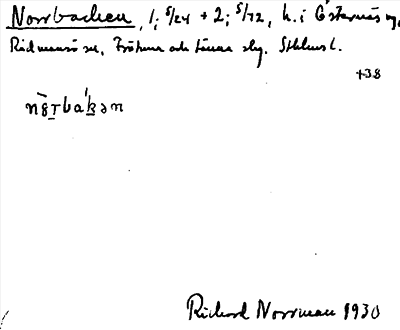 Norrbacken, 1; 5/24 + 2; 5/72, h. i Östernäs by,
Rådmansö sn, Frötuna och Länna slg. Sthlms l.
+38
Richard Norrman 1930